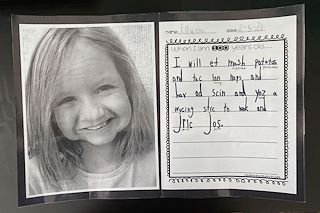 name: date:
When I am 100 years old...
I will et mash potatos
and tac lon naps and
hav od Scin and yoz a
wocing stic to wok and
jric jos.